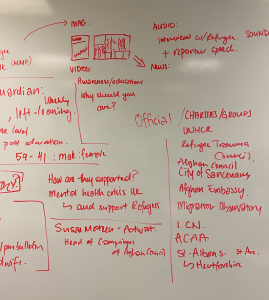 MAG:
AUDIO:
Interview w/ Refugee
SOUND
+ reporter speech.
NEWS:
(MMP)
VIDEO:
Awareness/education
Why should you
care?
uardian:
Weekly
left-leaning
level
post education.
59-41 : male : female
Official
/CHARITIES/GROUPS
UNHCR
Refugee Trauma
(Council)
Afghan Council
City of Sanctuary
Afghan Embassy.
Migration Observatory
ICN.
ACAA
St. Albans.
↳ Hertfordshire
How are they supported?
Mental health crisis UK
↳ and support Refugees
Susan - Activist
Head of Campaigns
at Afghan Council
bulletin